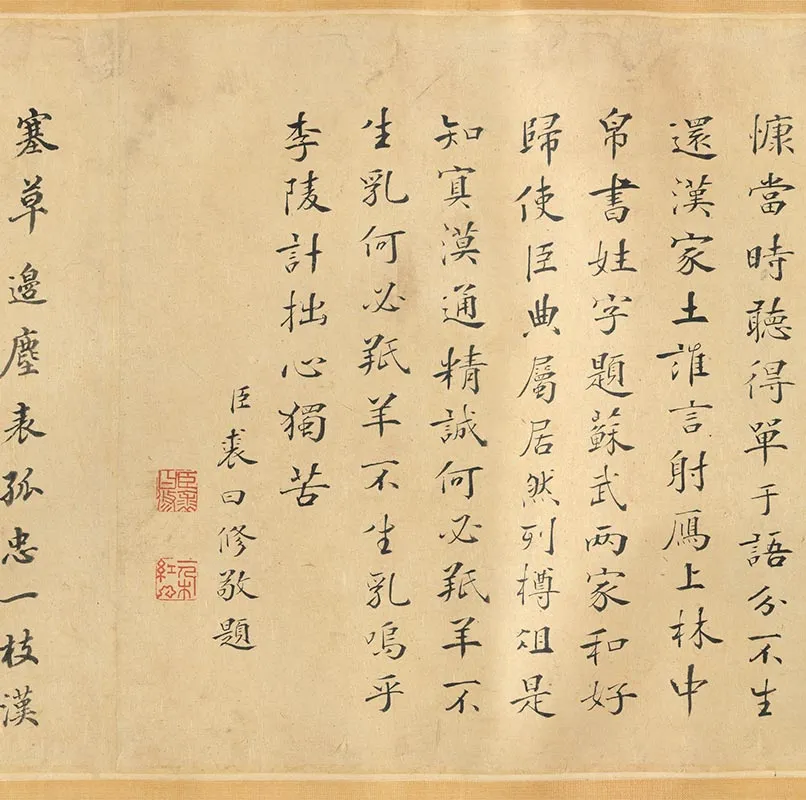 慷當時聽得單于語分不生
還漢家土誰言射鴈上林中
帛書姓字題蘇武兩家和好
歸使臣典屬居然列樽俎是
知㝠漠通精誠何必羝羊不
生乳何必羝羊不生乳嗚乎
李陵計拙心獨苦
臣裘曰修敬題
塞草邊塵表孤忠一枝漢